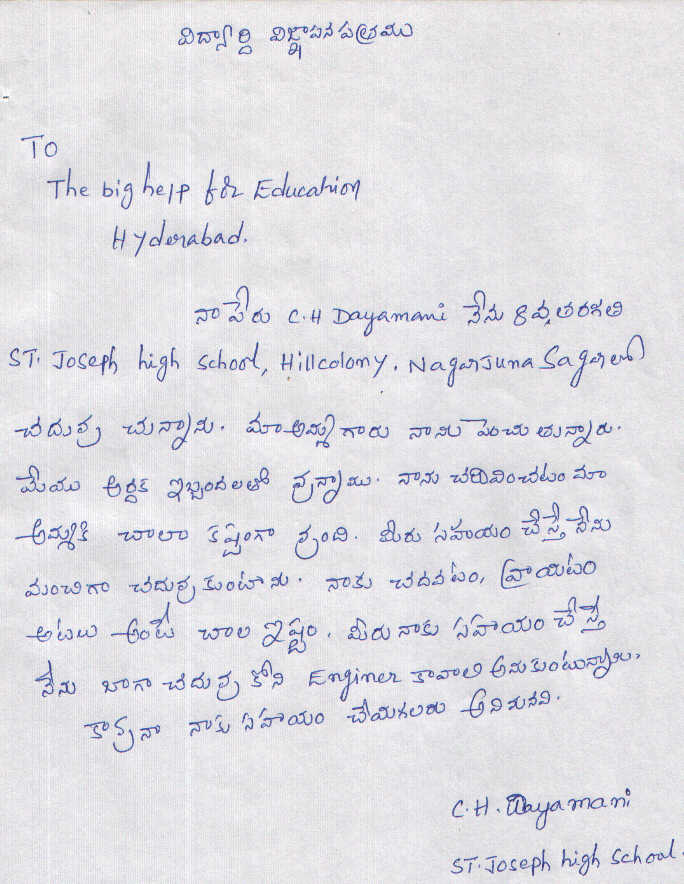 విద్యార్ది విజ్ఞాపన పత్రము
TO
The big help for Education
Hyderabad.
నా పేరు C.H Dayamani నేను 8వ్వ తరగతి
ST. Joseph high school, Hillcolony. Nagarjuna Sagarలో
చదువ్వు చున్నాను. మా అమ్మగారు నాను పెంచు తున్నారు.
మేము ఆర్దక ఇబ్బందలతో వ్వున్నాము. నాను చదివించటం మా
అమ్మకి చాలా కష్టంగా వ్వుంది. మీరు సహయం చేస్తే నేను
మంచిగా చదువ్వు కుంటాను. నాకు చదవటం, వ్రాయటం
అటలు అంటే చాల ఇష్టం. మీరు నాకు సహాయం చేస్తే
నేను బాగా చదువ్వు కోని Enginer కావాలి అను కుంటున్నాను.
కావ్వునా నాకు సహాయం చేయగలరు అని మనవి.
C.H. Dayamani
ST. Joseph high School.